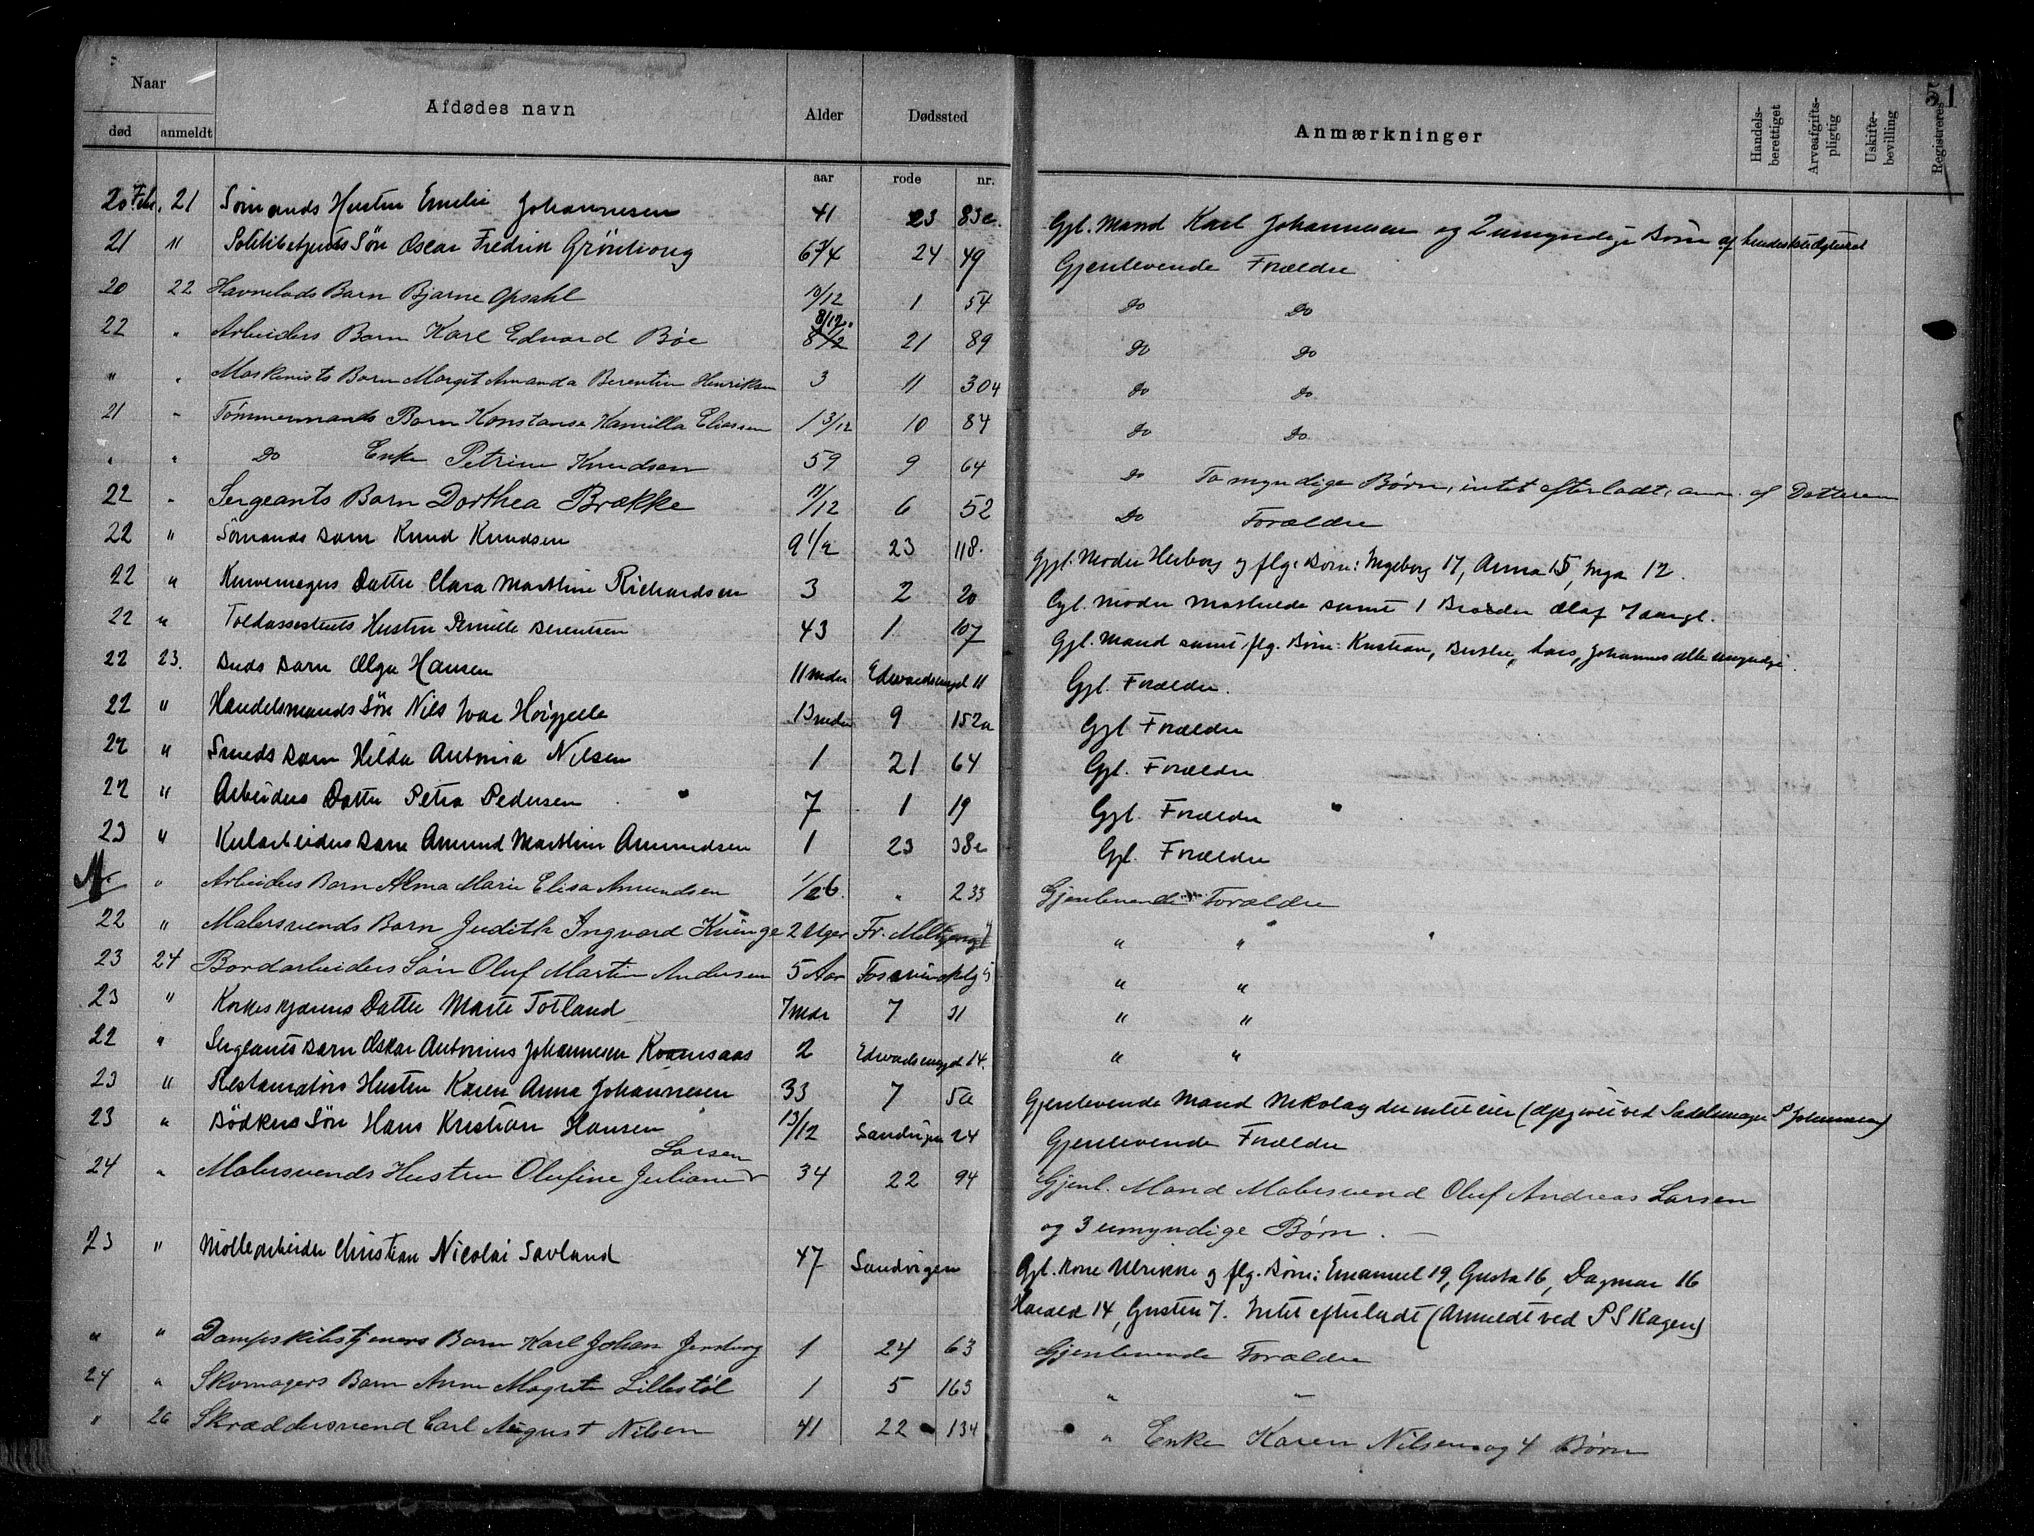 51
Naar
Afdødes navn
Alder
Dødssted
Anmærkninger
Handels-berettiget
Arveafgifts-pligtig
Uskifte-bevilling
Registreres
død anmeldt
aar rode nr.
20 Febr. 21 Sømands Hustru Emelie Johannesen 41 23 83c. Gjl. Mand Karl Johannesen og 2 umyndige Børn af
21 " Politibetjents Søn Oscar Fredrik 6 3/4 24 49 Gjenlevende Forældre
20 22 Barn Bjarne Opsahl 10/12 1 54 Do Do
22 " Arbeiders Barn Karl Edvard Bøe 8/12 21 89 Do Do
" " Maskinists Barn Margit Amanda Berentine Henriksen 3 11 304 Do Do
21 " Tømmermands Barn Konstanse Kamilla Eliassen 1 3/12 10 84 Do Do
" " Do Enke Petrine Knudsen 59 9 64 Do To myndige Børn, intet efterladt, anm. af Datteren
22 " Sergeants Barn Dorthea Brække 11/12 6 52 Do Forældre
22 " Sømands Barn Knud Knudsen 9 1/2 23 118. Gjl. Moder Herborg og flg. Børn: Ingeborg 17, Anna 15, Inga 12.
22 " Kurvemagers Datter Clara Marthine Richardsen 3 2 20 Gjl. Moder Mathilde samt 1 Broder Olaf 7 aargl.
22 " Toldassistents Hustru Pernille Berentsen 43 1 107 Gjl. Mand samt flg. Børn: Kristian, Berthe, Lars, Johannes alle umyndige.
22 23. Buds Barn Olga Hansen 11 mdr 11 Gjl. Forældre.
22 " Handelsmands Søn Nils Ivar 13 mdr 9 152a Gjl Forældre
22 " Smeds Barn Hilda Antonia Nilsen 1 21 64 Gjl. Forældre
22 " Arbeiders Datter Petra Pedersen 7 1 19 Gjl. Forældre
23 " Barn Amund Marthin Amundsen 1 23 38c Gjl. Forældre
" Arbeiders Barn Alma Marie Elisa Amundsen 1/26. " 233 Gjenlevende Forældre
22 " Malersvends Barn Judith Ingvard Kvinge 2 Uger " "
23 24 Bordarbeiders Søn Oluf Martin Andersen 5 Aar " "
23 " Datter Marte Totland 7 mdr 7 31 " "
22 " Sergeants Barn Oskar Antonius Johannesen Kvamsaas 2 14. " "
23 " Restauratørs Hustru Karen Anna Johannesen 33 7 5a Gjenlevende Mand Nikolay der intet eier (Opgivet ved Sadelmager P Johannesen)
23 " Bødkers Søn Hans Kristian Hansen 13/12 Sandvigen 24 Gjenlevende Forældre
24 " Malersvends Hustru Olufine Juliane Larsen 34 22 94 Gjenl. Mand Malersvend Oluf Andreas Larsen
og 3 umyndige Børn. —
23 " Møllearbeider Christian Nicolai Savland 47 Sandvigen Gjl. Kone Ulrikke og flg. Børn: Emanuel 19, Gusta 16, Dagmar 16
Harald 14, Gusten 7. Intet efterladt (Anmeldt ved P S Kagen)
" " Dampskibstjeners Barn Karl Johan 1 24 63 Gjenlevende Forældre
24 " Skomagers Barn Anne Magrete Lillestøl 1 5 163 " "
" 26 Skræddersvend Carl August Nilsen 41 22 134 " Enke Karen Nilsen og 4 Børn